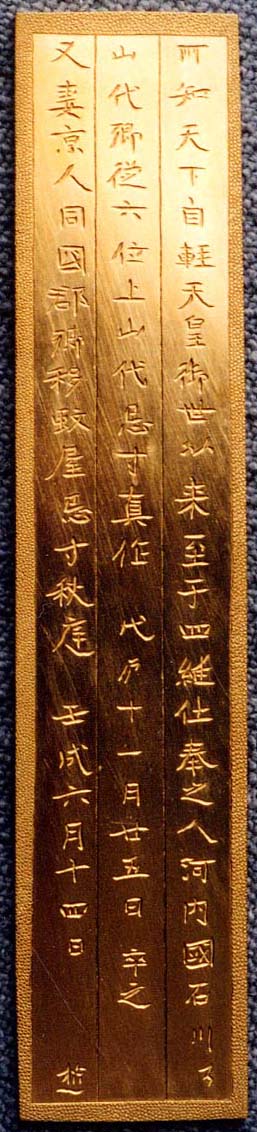 所知天下自輕天皇御世以来至于四継仕奉之人河内國石川
山代郷従六位上山代忌寸真作 戊辰十一月廿五日 卒之
又妻京人同國郡郷移蚊屋忌寸秋庭 壬戌六月十四日